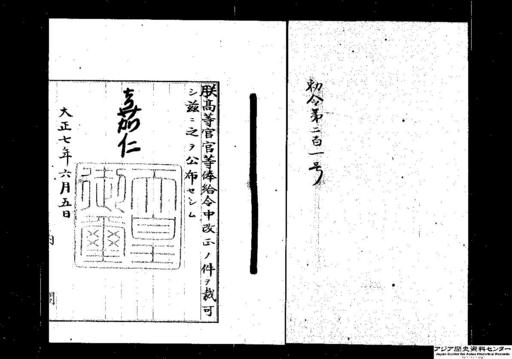 勅令第二百一号
朕高等官官等俸給令中改正ノ件ヲ裁可
シ茲ニ之ヲ公布セシム
嘉仁
天皇御璽
大正七年六月五日
内閣
アジア歴史資料センター
Japan Center for Asian Historical Records